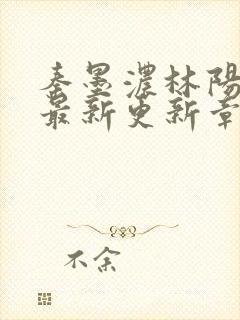 秦墨濃林陽
最新更新章
不余